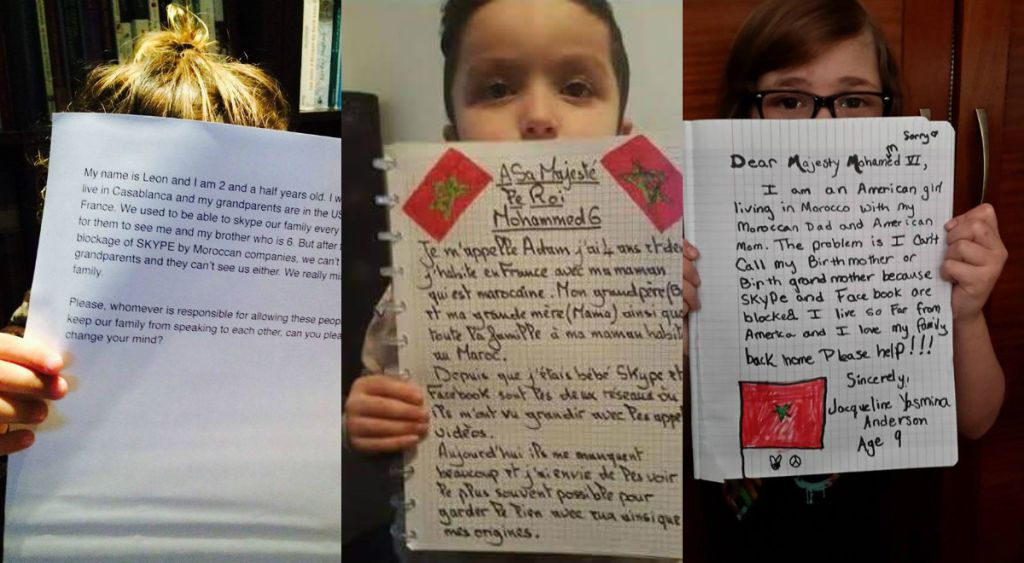 My name is Leon and I am 2 and a half years old. I w
live in Casablanca and my grandparents are in the US
France. We used to be able to skype our family every
for them to see me and my brother who is 6. But after t
blockage of SKYPE by Moroccan companies, we can't
grandparents and they can't see us either. We really mi
family.
Please, whomever is responsible for allowing these peop
keep our family from speaking to each other, can you plea
change your mind?
A Sa Majesté
Le Roi
Mohammed 6
Je m'appelle Adam j'ai 4 ans et de
j'habite en France avec ma maman
qui est marocaine. Mon grand père (B
et ma grande mère (Mama) ainsi que
toute la famille à ma maman habite
au Maroc.
Depuis que j'étais bébé Skype et
Facebook sont les deux réseaux où
ils m'ont vu grandir avec les appe
vidéos.
Aujourd'hui ils me manquent
beaucoup et j'ai envie de les voir
le plus souvent possible pour
garder le lien avec eux ainsi que
mes origines.
Sorry
Dear Majesty Mohamed m VI,
I am an American girl
living in Morocco with my
Moroccan Dad and American
Mom. The problem is I Can't
Call my Birthmother or
Birth grandmother because
SKYPe and Facebook are
blocked. I live so far from
America and I love my family
back home Please help!!!
Sincerely,
Jacqueline Yasmina
Anderson
Age 9